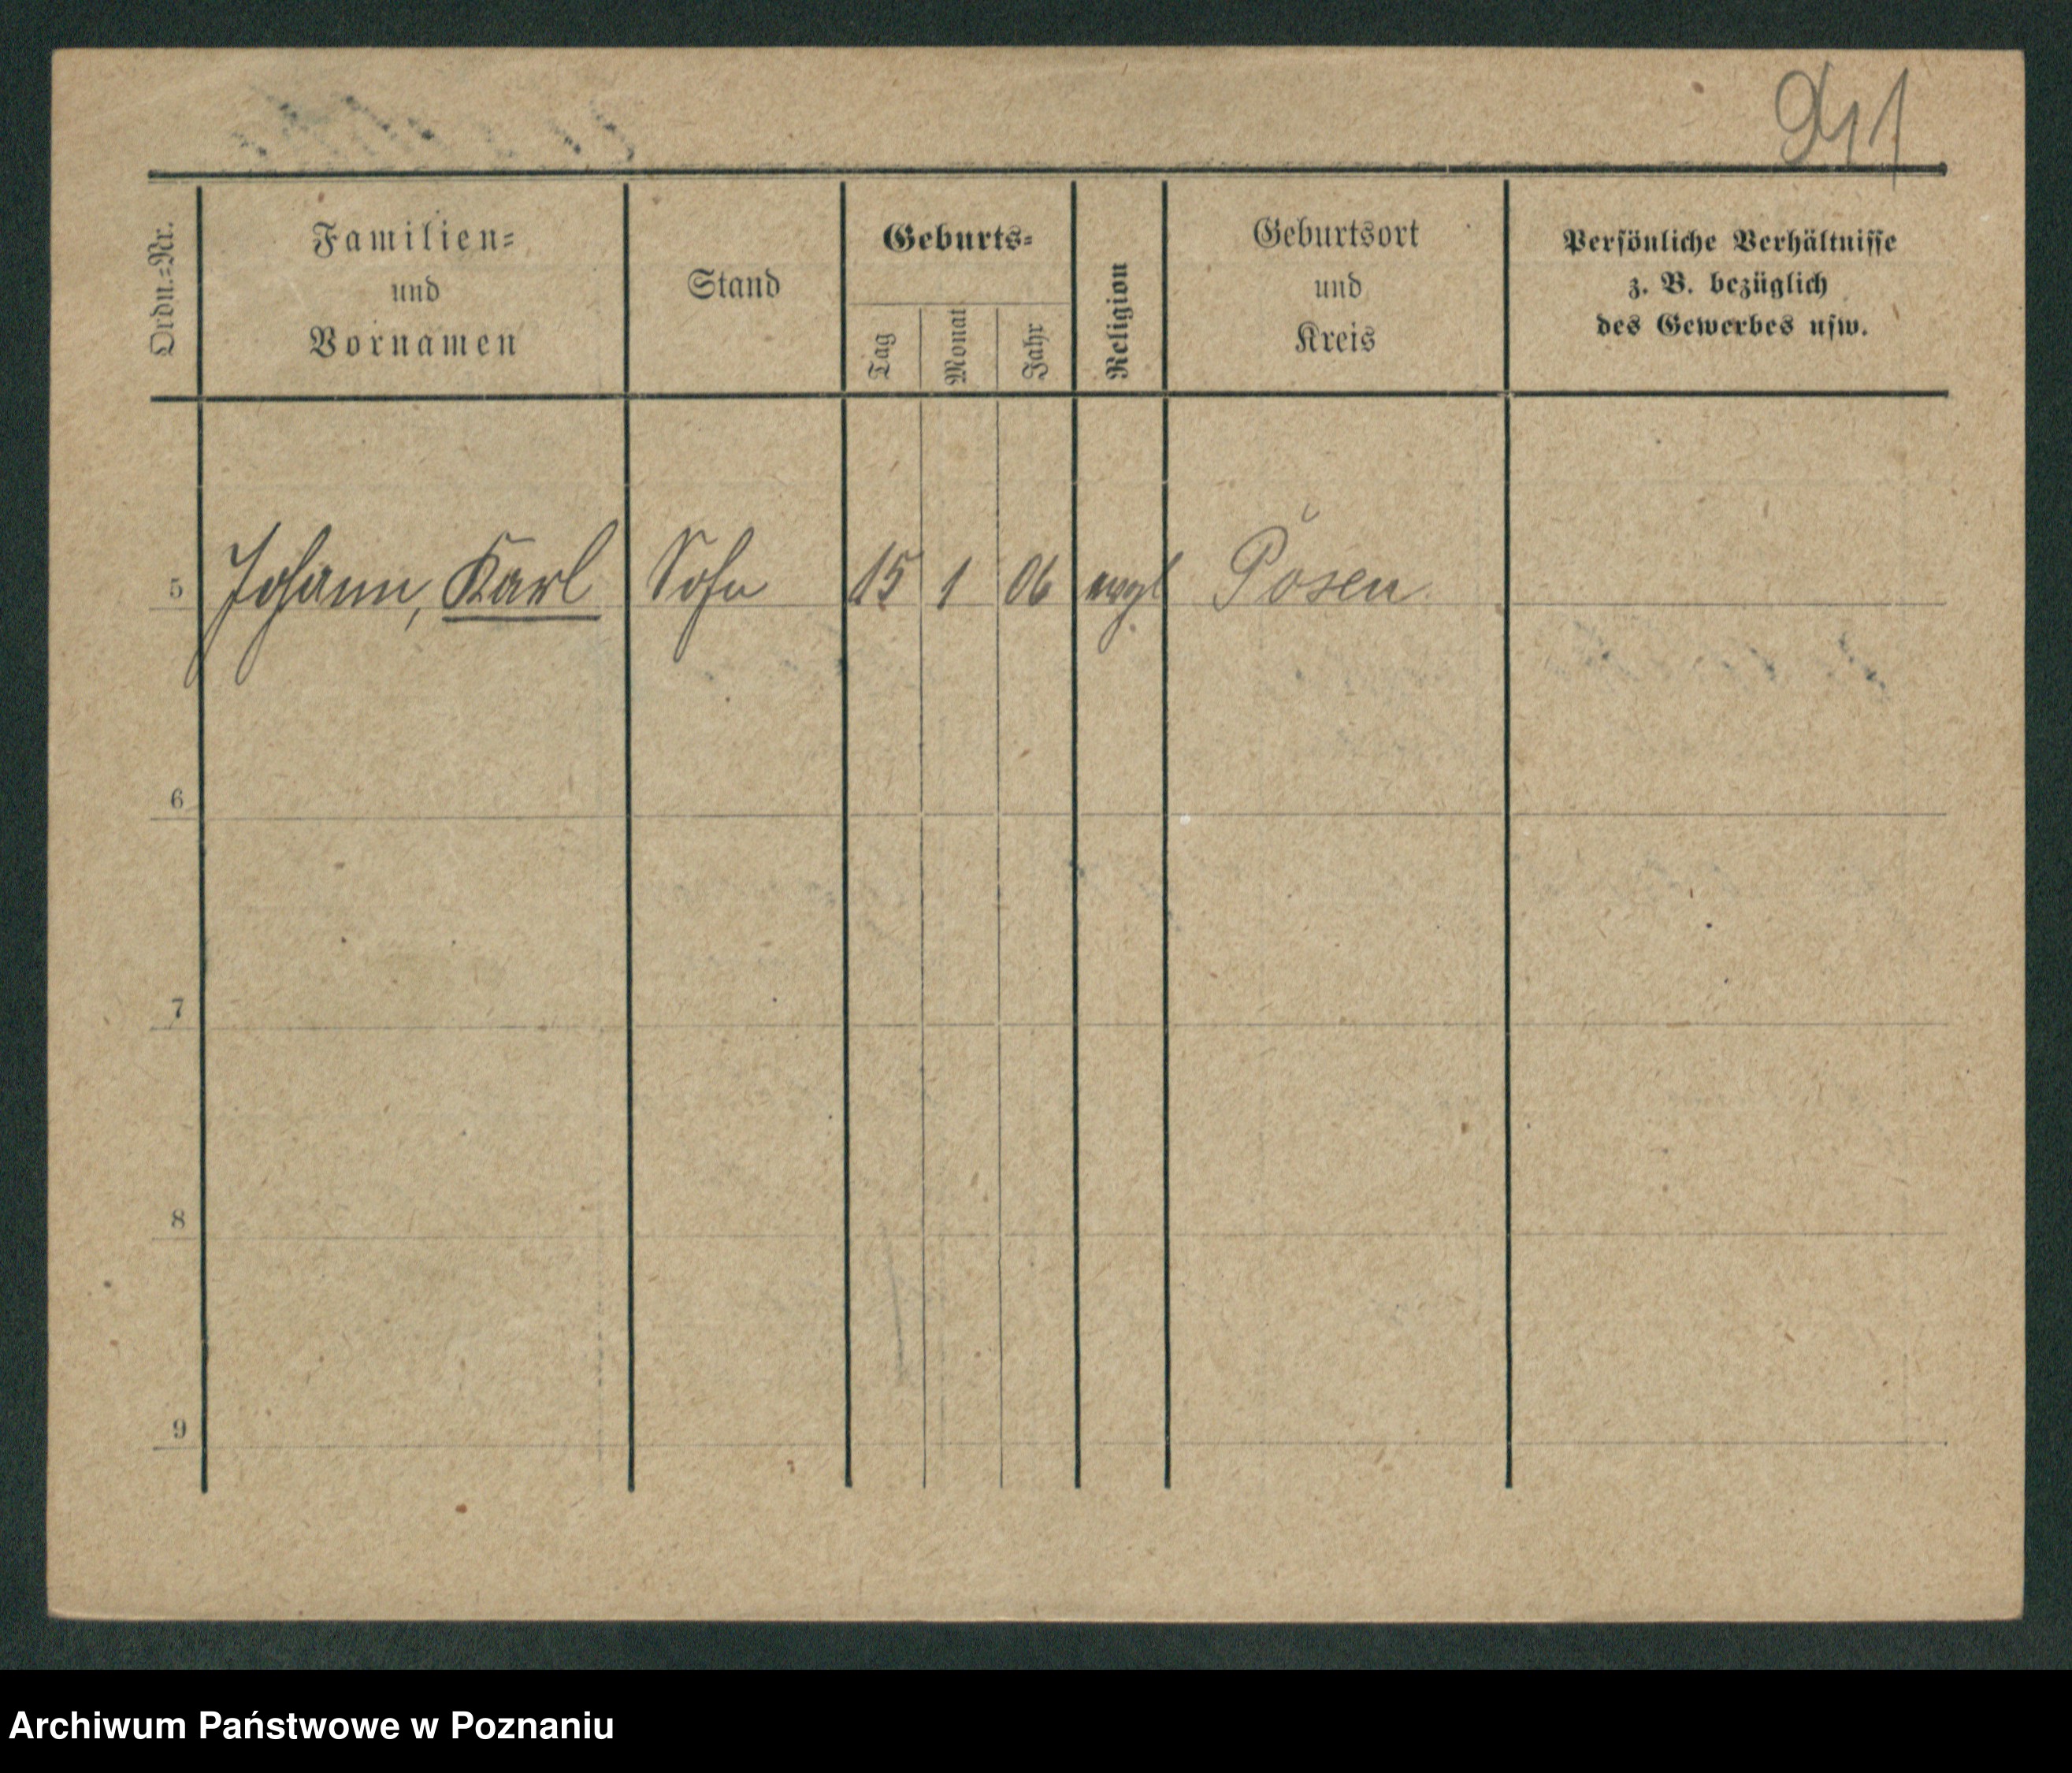 Ordn.=Nr.
Familien=
und
Vornamen
Stand
Geburts=
Tag
Monat
Jahr
Religion
Geburtsort
und
Kreis
Persönliche Verhältnisse
z. B. bezüglich
des Gewerbes usw.
5 Johann, Karl Sohn 15 1 06 evgl Posen
6
7
8
9
Archiwum Państwowe w Poznaniu